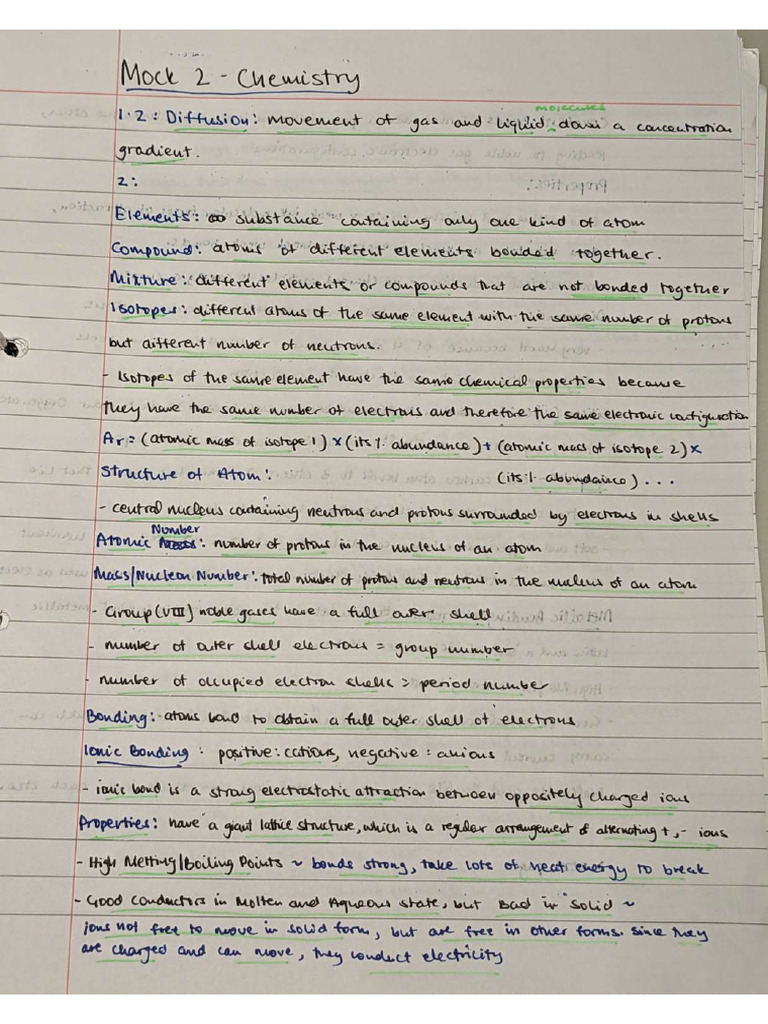 Mock 2 - Chemistry
1.2: Diffusion: movement of gas and liquid molecules down a concentration
gradient.
2:
Elements: substance containing only one kind of atom
Compound: atoms of different elements bonded together.
Mixture: different elements or compounds that are not bonded together
Isotopes: different atoms of the same element with the same number of protons
but different number of neutrons.
- Isotopes of the same element have the same chemical properties because
they have the same number of electrons and therefore the same electronic configuration
Ar = (atomic mass of isotope 1) × (its % abundance) + (atomic mass of isotope 2) ×
(its % abundance) ...
Structure of Atom:
- central nucleus containing neutrons and protons surrounded by electrons in shells
Atomic Number: number of protons in the nucleus of an atom
Mass/Nucleon Number: total number of protons and neutrons in the nucleus of an atom
- Group (VIII) noble gases have a full outer shell
- number of outer shell electrons = group number
- number of occupied electron shells = period number
Bonding: atoms bond to obtain a full outer shell of electrons
Ionic Bonding: positive: cations, negative: anions
- ionic bond is a strong electrostatic attraction between oppositely charged ions
Properties: have a giant lattice structure, which is a regular arrangement of alternating +, - ions
- High Melting/Boiling Points ~ bonds strong, take lots of heat energy to break
- Good conductors in Molten and Aqueous state, but Bad in Solid ~
ions not free to move in solid form, but are free in other forms. since they
are charged and can move, they conduct electricity